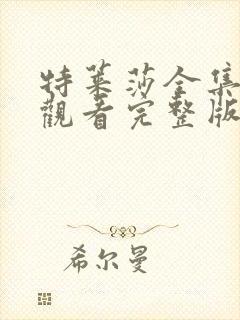 特莱莎全集
觀看完整版
希尔曼